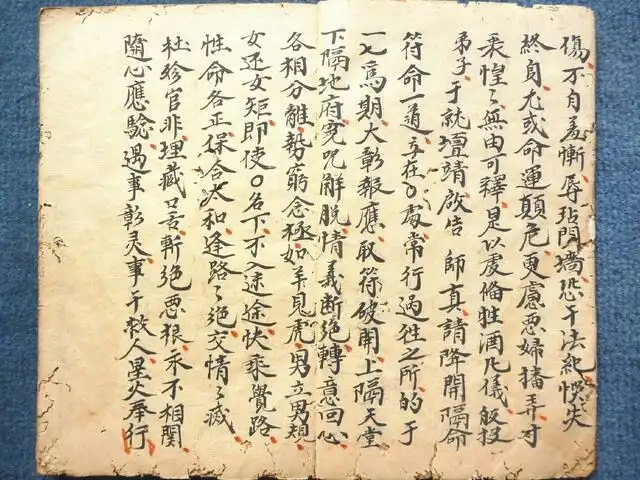 傷不自羞慚辱玷門墻恐干法紀悞失
終身尤或命運顛危更慮惡婦播弄寸
衷惶〻無由可釋是以虔俻牲酒凡儀皈投
弟子于就壇靖啟告 師真請降開隔命
符命一道立在〇處常行過往之所的于
一七為期大彰報應取符破開上隔天堂
下隔地府寃咒解脱情義断絶轉意回心
各相分離勢窮念極如羊見虎男立男規
女还女矩即使〇名下不入迷途快乘覺路
性命各正保合太和逢路〻絶交情〻滅
杜紾官非埋藏口舌斬絶惡狠永不相関
隨心應驗遇事彰灵事干救人星火奉行